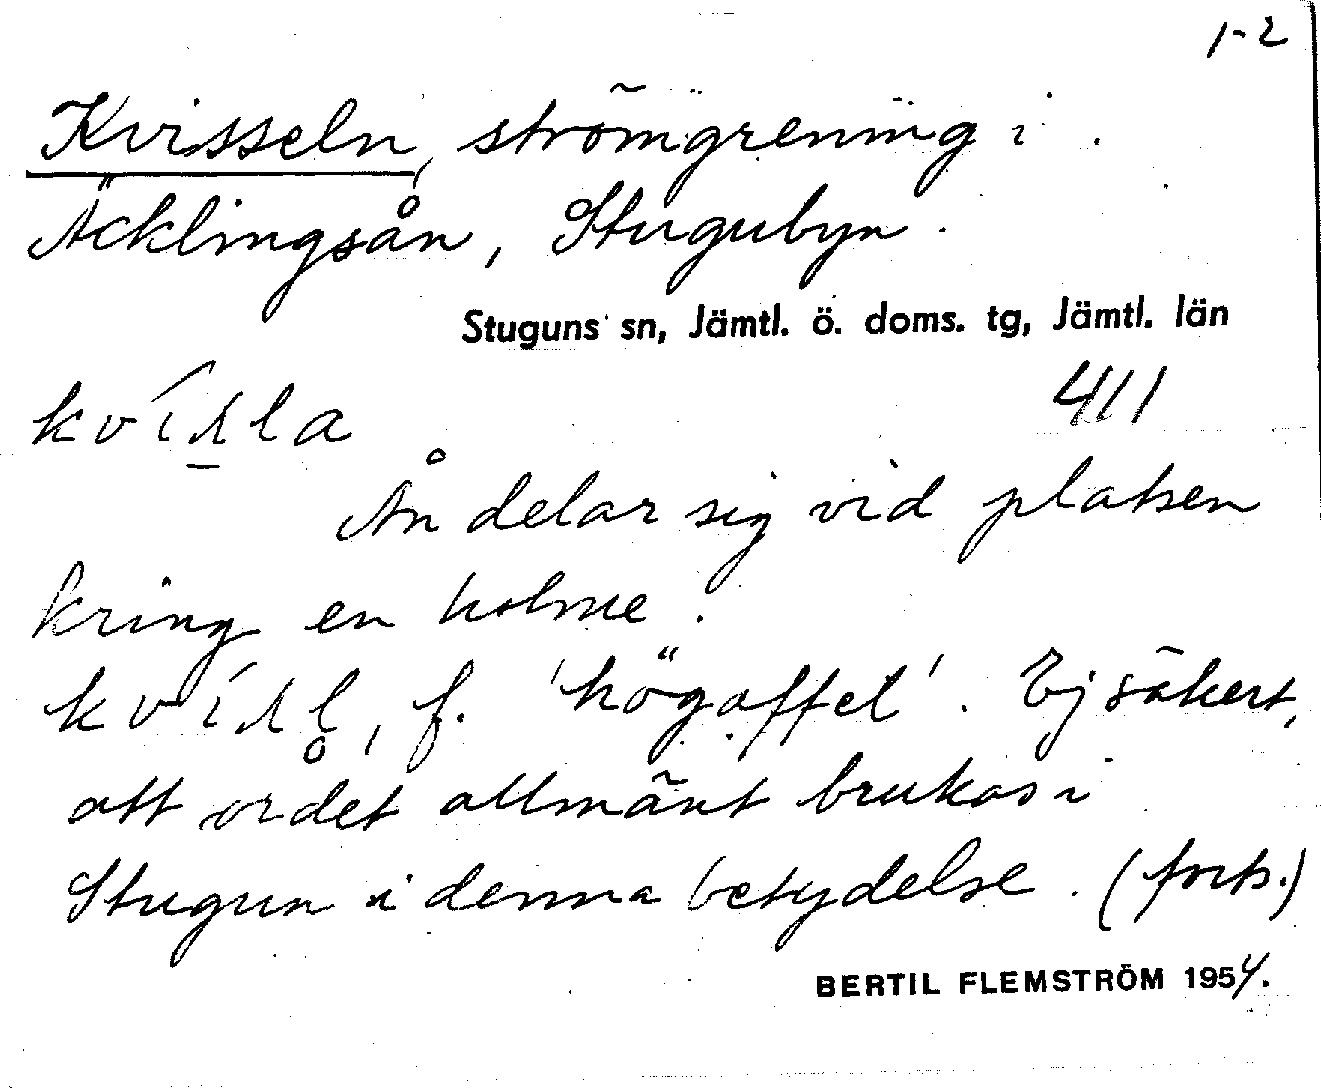 1-2
Kvisseln, strömgrening i
Äcklingsån, Stugubyn.
Stuguns sn, Jämtl. ö. doms. tg, Jämtl. län
kvísla
411
Ån delar sig vid platsen
kring en holme.
kvísl̥, f. 'högaffel'. Ej säkert,
att ordet allmänt brukas i
Stugun i denna betydelse. (forts.)
BERTIL FLEMSTRÖM 1954.